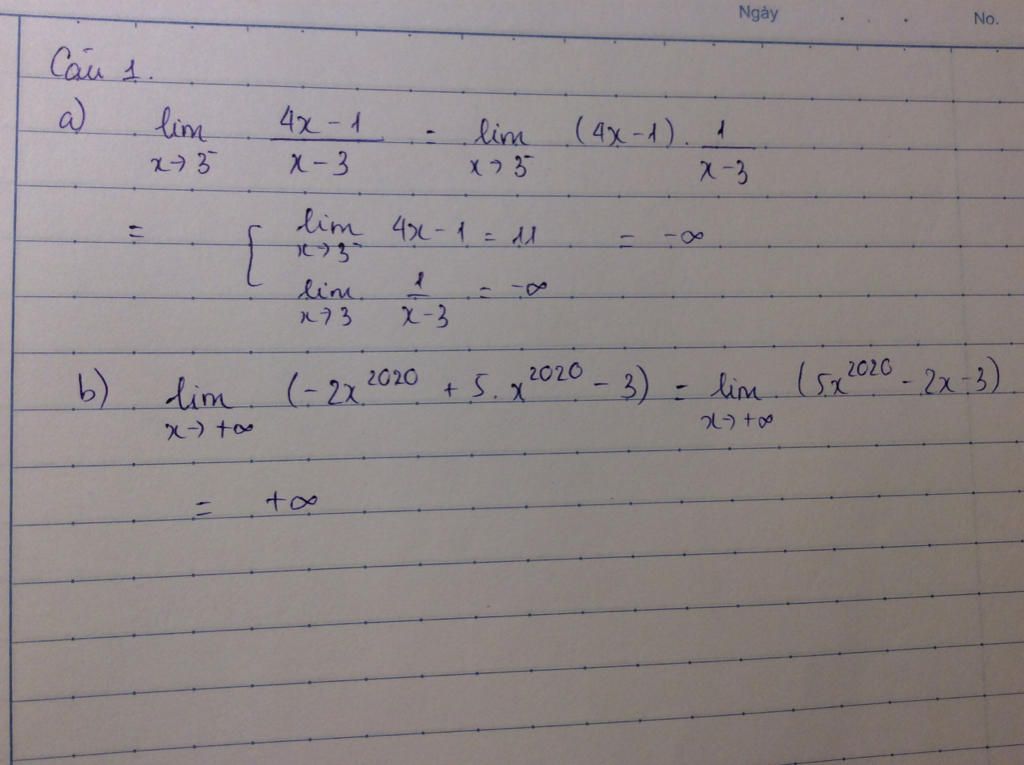 Ngày . . . No.
Câu 1.
a) lim x→3⁻ (4x-1)/(x-3) = lim x→3⁻ (4x-1) . 1/(x-3)
= { lim x→3⁻ 4x-1 = 11 = -∞
lim x→3 1/(x-3) = -∞
b) lim x→+∞ (-2x²⁰²⁰ + 5.x²⁰²⁰ - 3) = lim x→+∞ (5x²⁰²⁰ - 2x-3)
= +∞